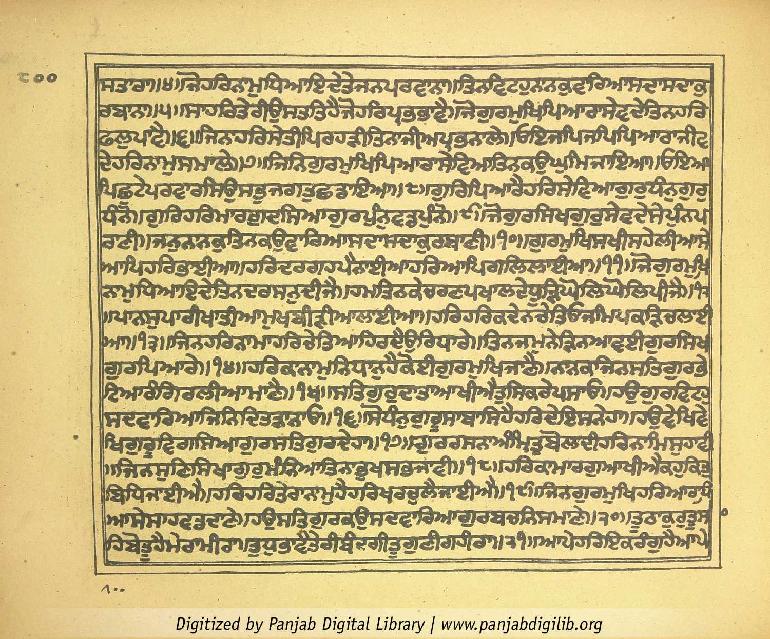 ੮੦੦
ਸਤਾਰਾ॥੪॥ਜੋਹਰਿਨਾਮੁਧਿਆਇਦੇਤੇਜਨਪਰਵਾਨਾ॥ਤਿਨਵਿਟਹੁਨਾਨਕੁਵਾਰਿਆਸਦਾਸਦਾਕੁ
ਰਬਾਨਾ॥੫॥ਸਾਹਰਿਤੇਰੀਉਸਤਤਿਹੈਜੋਹਰਿਪ੍ਰਭਭਾਵੈ॥ਜੋਗੁਰਮੁਖਿਪਿਆਰਾਸੇਵਦੇਤਿਨਹਰਿ
ਫਲੁਪਾਵੈ॥੬॥ਜਿਨਾਹਰਿਸੇਤੀਪਿਰਹੜੀਤਿਨਾਜੀਅਪ੍ਰਭਨਾਲੇ॥ਓਇਜਪਿਜਪਿਪਿਆਰਾਜੀਵ
ਦੇਹਰਿਨਾਮੁਸਮਾਲੇ॥੭॥ਜਿਨਗੁਰਮੁਖਿਪਿਆਰਾਸੇਵਿਆਤਿਨਕਉਘੁਮਿਜਾਇਆ॥ਓਇਆ
ਪਿਛੁਟੇਪਰਵਾਰਸਿਉਸਭੁਜਗਤੁਛਡਾਇਆ॥੮॥ਗੁਰਿਪਿਆਰੈਹਰਿਸੇਵਿਆਗੁਰੁਧੰਨੁਗੁਰੁ
ਧੰਨੋ॥ਗੁਰਿਹਰਿਮਾਰਗੁਦਸਿਆਗੁਰਪੁੰਨੁਵਡਪੁੰਨੋ॥੯॥ਜੋਗੁਰਸਿਖਗੁਰੁਸੇਵਦੇਸੇਪੁੰਨਪ
ਰਾਣੀ॥ਜਨੁਨਾਨਕੁਤਿਨਕਉਵਾਰਿਆਸਦਾਸਦਾਕੁਰਬਾਣੀ॥੧੦॥ਗੁਰਮੁਖਿਸਖੀਸਹੇਲੀਆਸੇ
ਆਪਿਹਰਿਭਾਈਆ॥ਹਰਿਦਰਗਹਪੈਨਾਈਆਹਰਿਆਪਿਗਲਿਲਾਈਆ॥੧੧॥ਜੋਗੁਰਮੁਖਿ
ਨਾਮੁਧਿਆਇਦੇਤਿਨਦਰਸਨੁਦੀਜੈ॥ਹਮਤਿਨਕੇਚਰਣਪਖਾਲਦੇਧੂੜਿਘੋਲਿਘੋਲਿਪੀਜੈ॥੧੨
॥ਪਾਨਸੁਪਾਰੀਖਾਤੀਆਮੁਖਿਬੀੜੀਆਲਾਈਆ॥ਹਰਿਹਰਿਕਦੇਨਚੇਤਿਓਜਮਿਪਕੜਿਚਲਾਈ
ਆ॥੧੩॥ਜਿਨਹਰਿਨਾਮਾਹਰਿਚੇਤਿਆਹਿਰਦੈਉਰਿਧਾਰੇ॥ਤਿਨਜਮੁਨੇੜਿਨਆਵਈਗੁਰਸਿਖ
ਗੁਰਪਿਆਰੇ॥੧੪॥ਹਰਿਕਾਨਾਮੁਨਿਧਾਨੁਹੈਕੋਈਗੁਰਮੁਖਿਜਾਣੈ॥ਨਾਨਕਜਿਨਸਤਿਗੁਰੁਭੇ
ਟਿਆਰੰਗਿਰਲੀਆਮਾਣੈ॥੧੫॥ਸਤਿਗੁਰੁਦਾਤਾਆਖੀਐਤੁਸਿਕਰੇਪਸਾਓ॥ਹਉਗੁਰਵਿਟਹੁ
ਸਦਵਾਰਿਆਜਿਨਿਦਿਤੜਾਨਾਓ॥੧੬॥ਸੋਧੰਨੁਗੁਰੂਸਾਬਾਸਿਹੈਹਰਿਦੇਇਸਨੇਹਾ॥ਹਉਵੇਖਿਵੇ
ਖਿਗੁਰੂਵਿਗਸਿਆਗੁਰਸਤਿਗੁਰਦੇਹਾ॥੧੭॥ਗੁਰਰਸਨਾਅੰਮ੍ਰਿਤੁਬੋਲਦੀਹਰਿਨਾਮਿਸੁਹਾਵੀ
॥ਜਿਨਸੁਣਿਸਿਖਾਗੁਰੁਮੰਨਿਆਤਿਨਾਭੁਖਸਭਜਾਵੀ॥੧੮॥ਹਰਿਕਾਮਾਰਗੁਆਖੀਐਕਹੁਕਿਤੁ
ਬਿਧਿਜਾਈਐ॥ਹਰਿਹਰਿਤੇਰਾਨਾਮੁਹੈਹਰਿਖਰਚੁਲੈਜਾਈਐ॥੧੯॥ਜਿਨਗੁਰਮੁਖਿਹਰਿਆਰਾਧਿ
ਆਸੇਸਾਹਵਡਦਾਣੇ॥ਹਉਸਤਿਗੁਰਕਉਸਦਵਾਰਿਆਗੁਰਬਚਨਿਸਮਾਣੇ॥੨੦॥ਤੂਠਾਕੁਰੁਤੂਸਾ
ਹਿਬੋਤੂਹੈਮੇਰਾਮੀਰਾ॥ਤੁਧੁਭਾਵੈਤੇਰੀਬੰਦਗੀਤੂਗੁਣੀਗਹੀਰਾ॥੨੧॥ਆਪੇਹਰਿਇਕਰੰਗੁਹੈਆਪੇ
Digitized by Panjab Digital Library | www.panjabdigilib.org